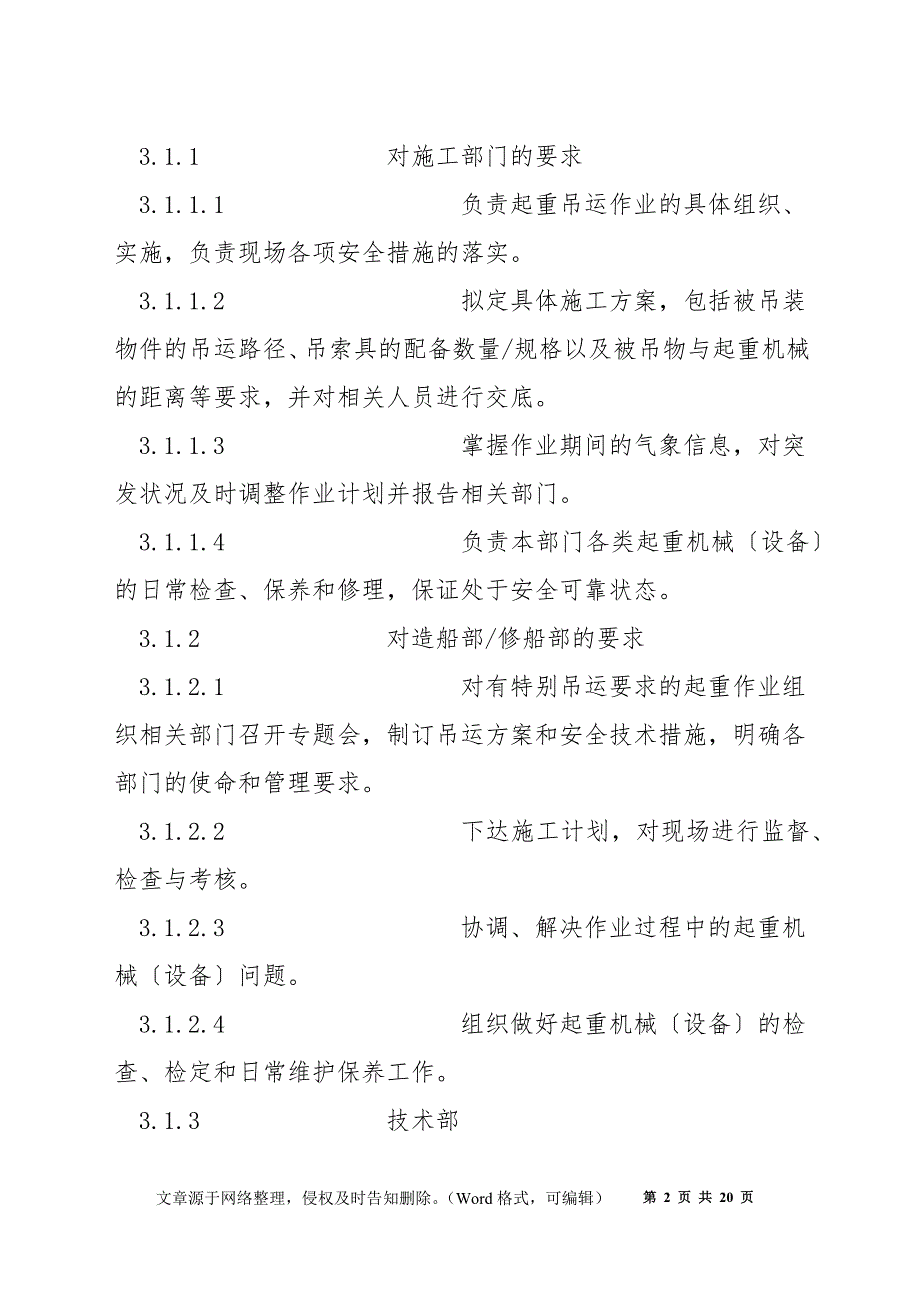 3.1.1 对施工部门的要求
3.1.1.1 负责起重吊运作业的具体组织、
实施，负责现场各项安全措施的落实。
3.1.1.2 拟定具体施工方案，包括被吊装
物件的吊运路径、吊索具的配备数量/规格以及被吊物与起重机械
的距离等要求，并对相关人员进行交底。
3.1.1.3 掌握作业期间的气象信息，对突
发状况及时调整作业计划并报告相关部门。
3.1.1.4 负责本部门各类起重机械〔设备〕
的日常检查、保养和修理，保证处于安全可靠状态。
3.1.2 对造船部/修船部的要求
3.1.2.1 对有特别吊运要求的起重作业组
织相关部门召开专题会，制订吊运方案和安全技术措施，明确各
部门的使命和管理要求。
3.1.2.2 下达施工计划，对现场进行监督、
检查与考核。
3.1.2.3 协调、解决作业过程中的起重机
械〔设备〕问题。
3.1.2.4 组织做好起重机械〔设备〕的检
查、检定和日常维护保养工作。
3.1.3 技术部
文章源于网络整理，侵权及时告知删除。（Word 格式，可编辑） 第 2 页 共 20 页